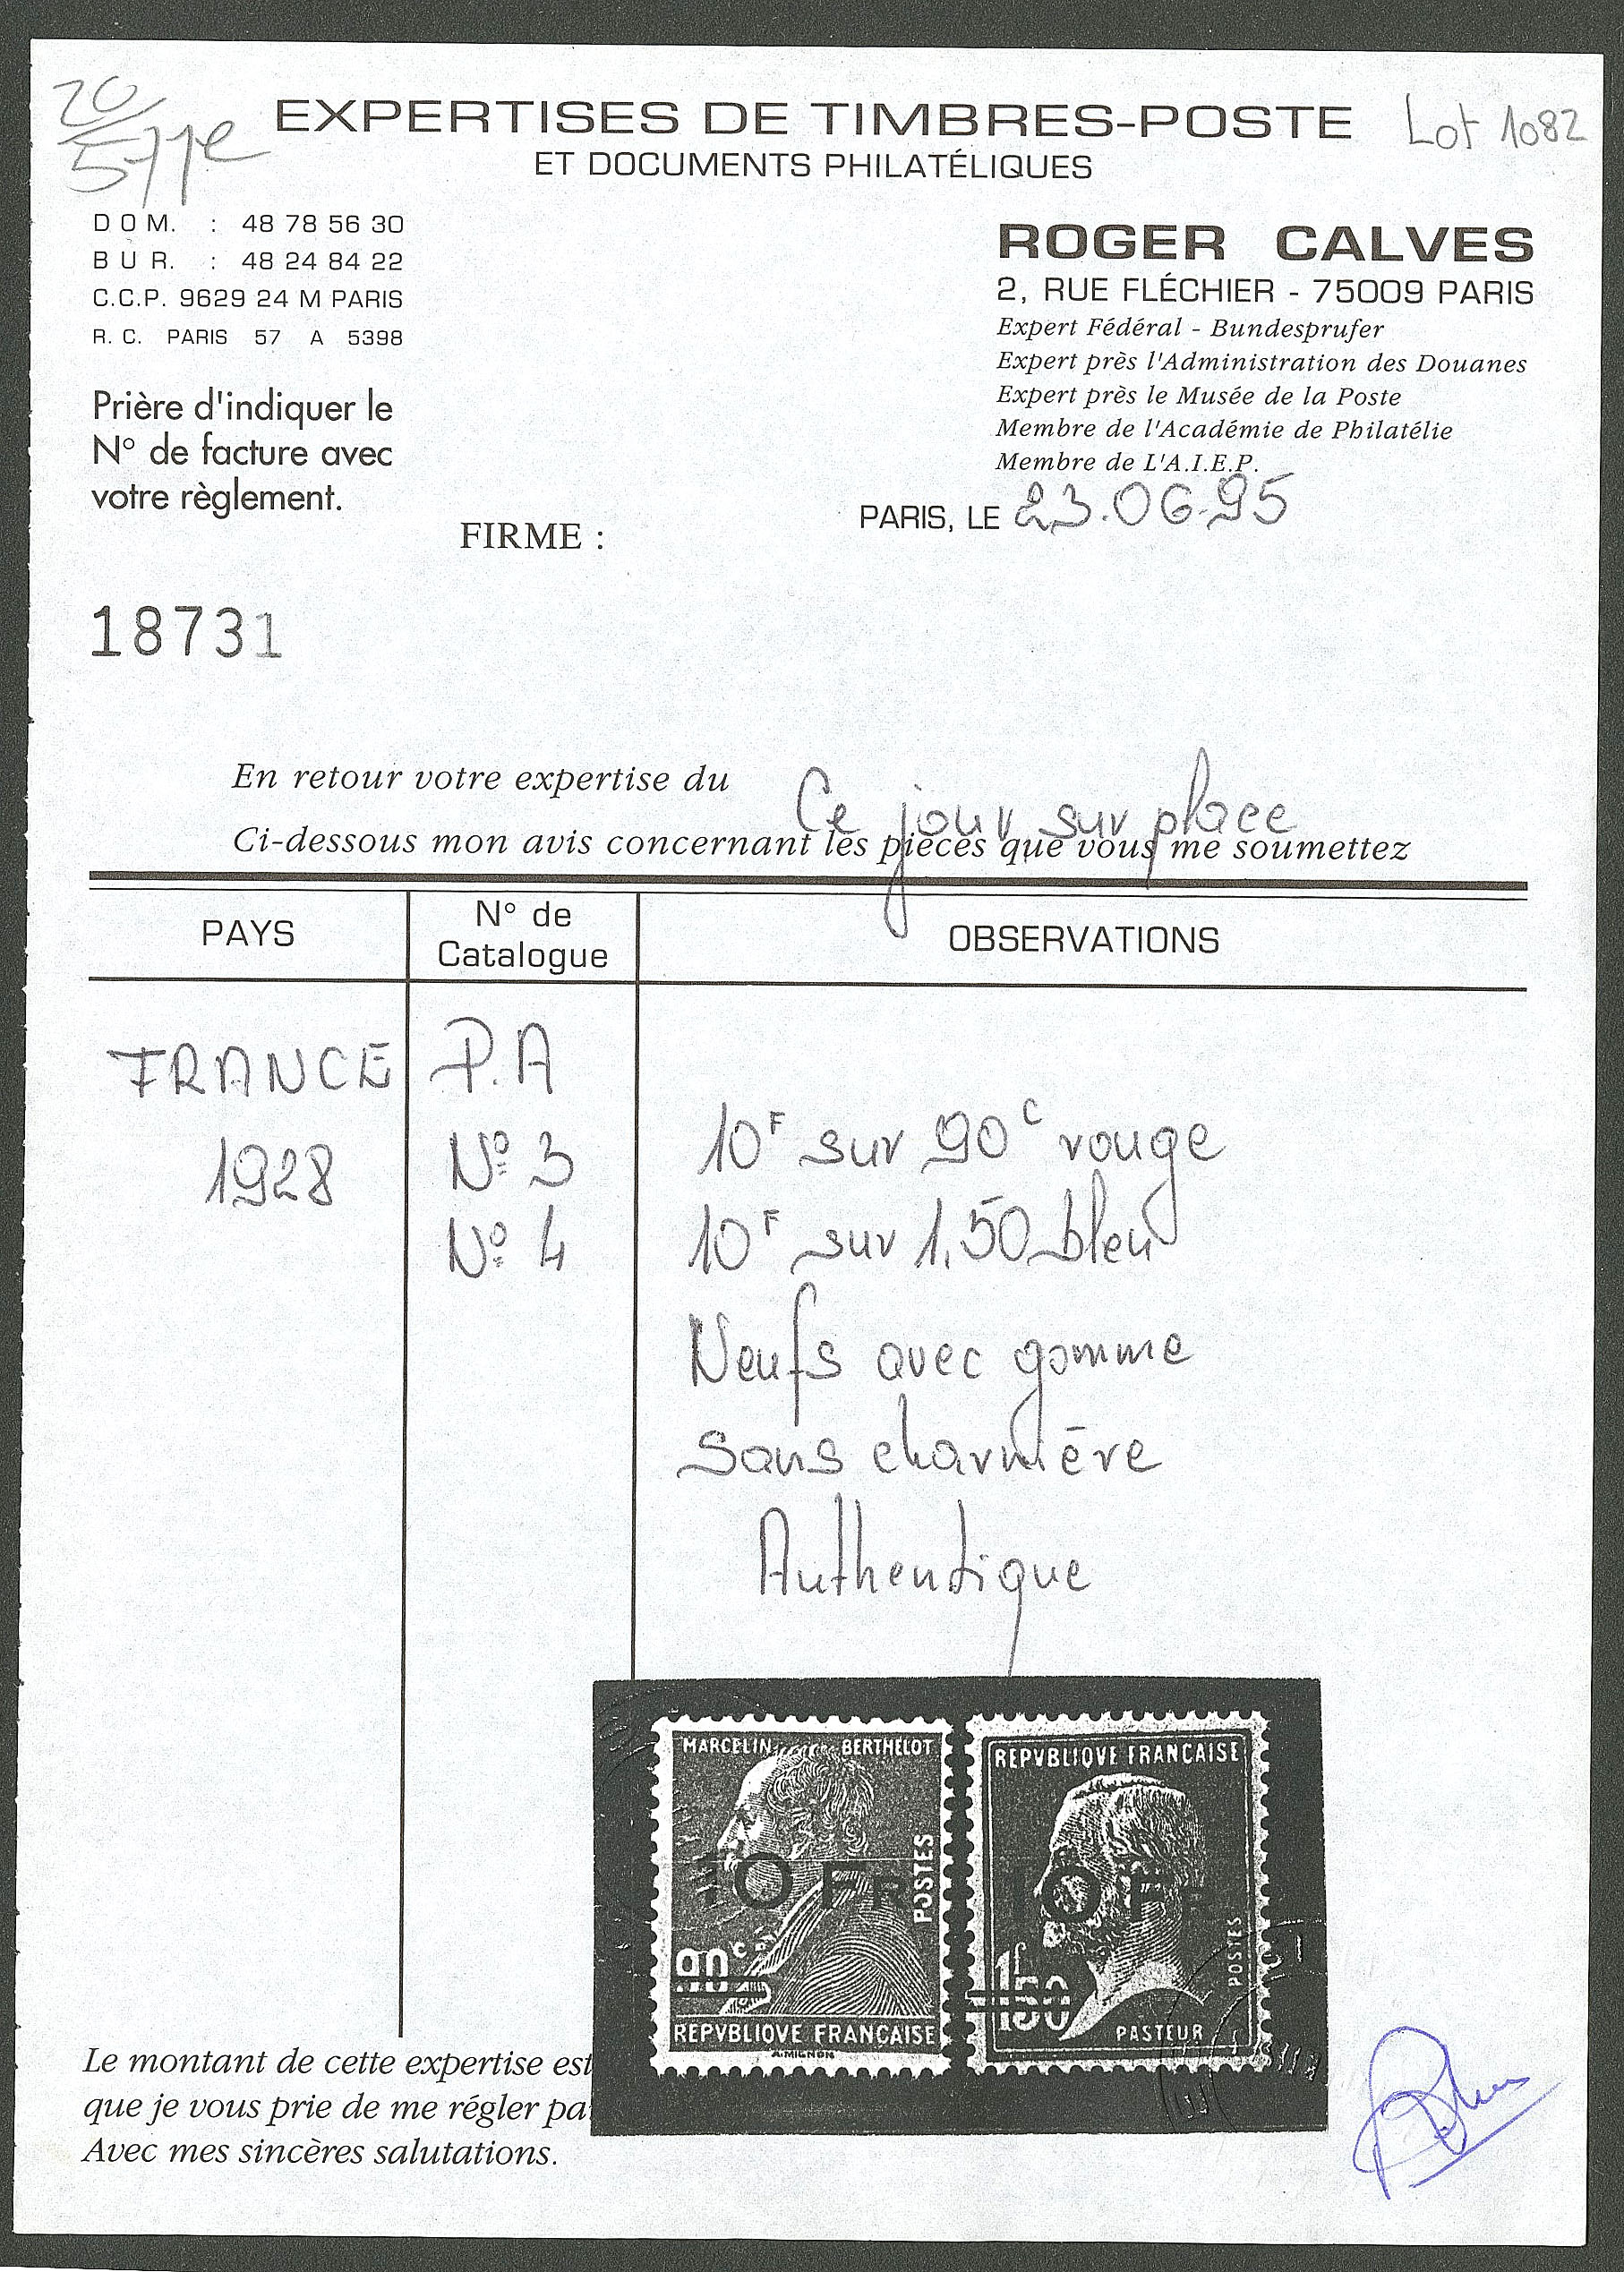 20
571e
EXPERTISES DE TIMBRES-POSTE
Lot 1082
ET DOCUMENTS PHILATÉLIQUES
DOM. : 48 78 56 30
BUR. : 48 24 84 22
C.C.P. 9629 24 M PARIS
R. C. PARIS 57 A 5398
ROGER CALVES
2, RUE FLÉCHIER - 75009 PARIS
Expert Fédéral - Bundesprufer
Expert près l'Administration des Douanes
Expert près le Musée de la Poste
Membre de l'Académie de Philatélie
Membre de L'A.I.E.P.
Prière d'indiquer le
N° de facture avec
votre règlement.
PARIS, LE 23.06.95
FIRME :
18731
En retour votre expertise du Ce jour sur place
Ci-dessous mon avis concernant les pièces que vous me soumettez
PAYS
N° de
Catalogue
OBSERVATIONS
FRANCE P.A
1928 N° 3 10F sur 90c rouge
N° 4 10F sur 1,50 bleu
Neufs avec gomme
sans charnière
Authentique
MARCELIN BERTHELOT
10 FR
POSTES
90c
REPVBLIQVE FRANCAISE
A.MIGNON
REPVBLIQVE FRANCAISE
10 FR
POSTES
1f50
PASTEUR
Le montant de cette expertise est
que je vous prie de me régler pa
Avec mes sincères salutations.